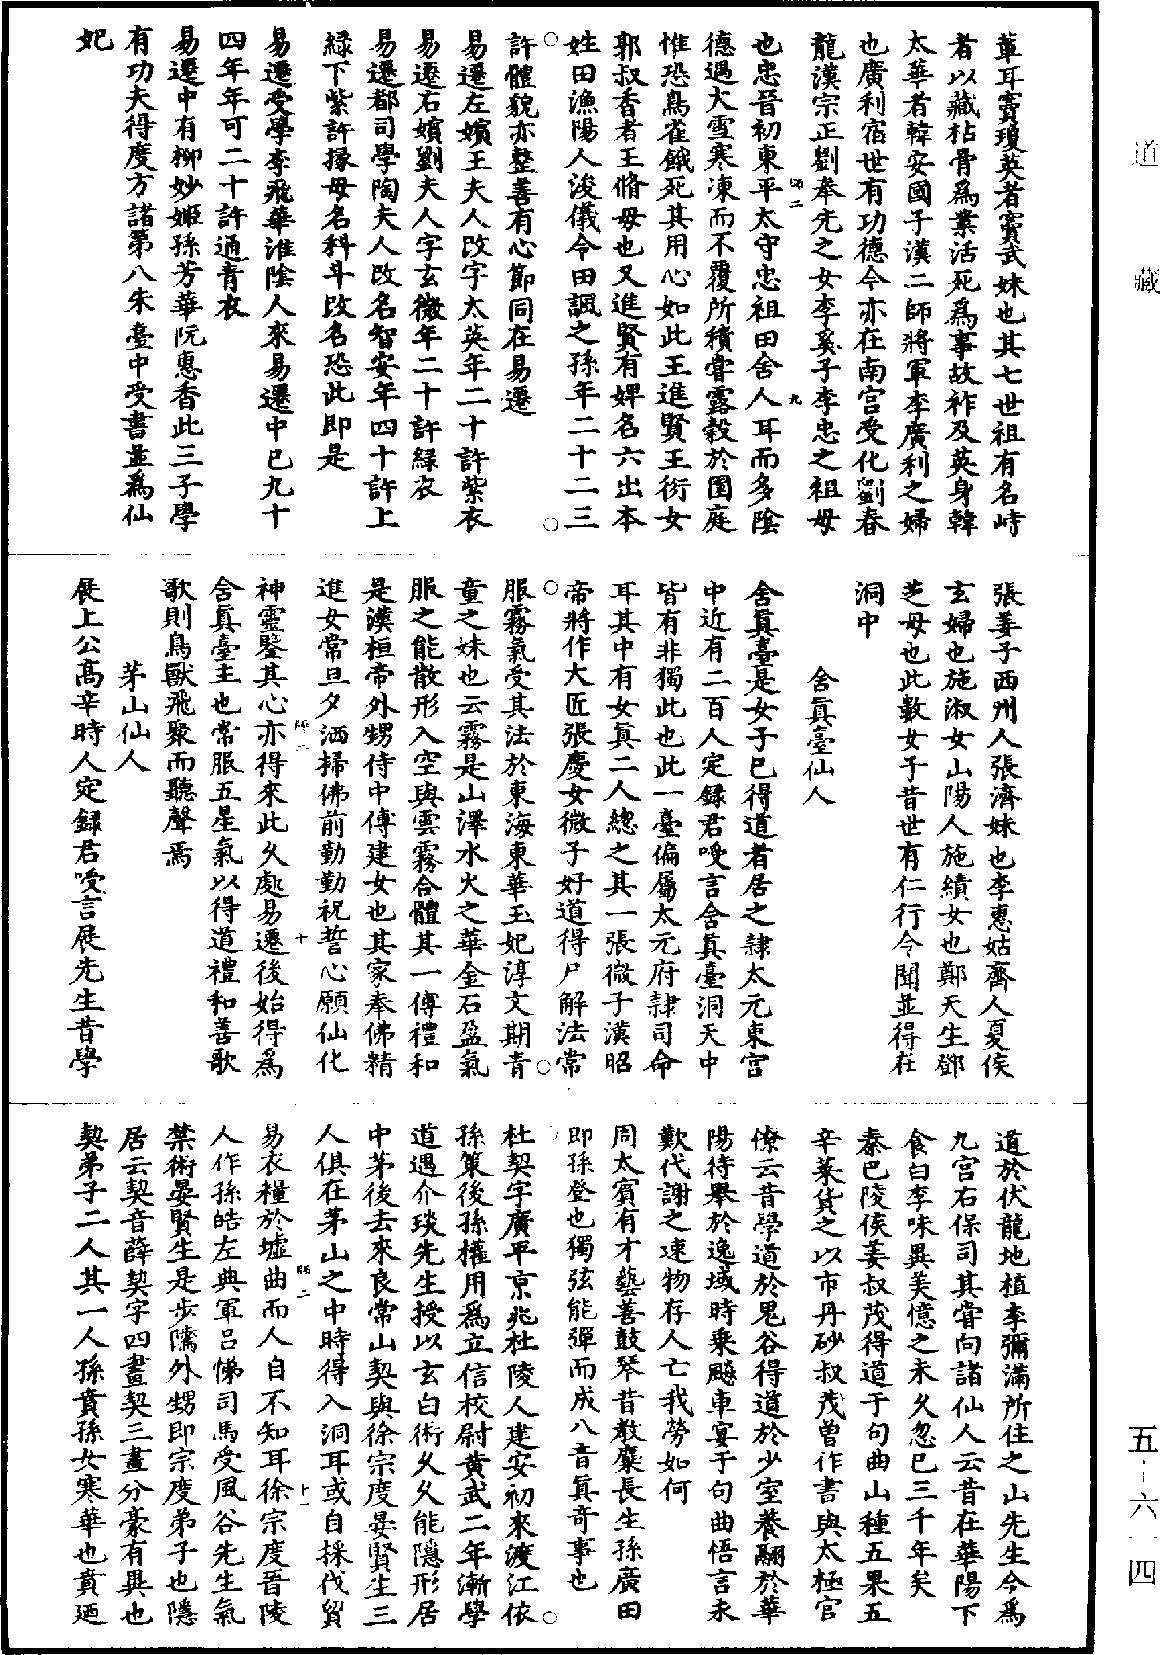 葷耳竇瓊英者竇武妹也其七世祖有名峙
者以藏枯骨爲業活死爲事故祚及英身韓
太華者韓安國子漢二師將軍李廣利之婦
也廣利宿世有功德今亦在南宫受化劉春
龍漢宗正劉奉先之女李奚子李忠之祖母
也忠晉初東平太守忠祖田舍人耳而多陰
德遇大雪寒凍而不覆所積甞露穀於園庭
惟恐鳥雀餓死其用心如此王進賢王衍女
郭叔香者王脩母也又進賢有婢名六出本
姓田漁陽人浚儀令田諷之孫年二十二三
許體貌亦整善有心節同在易遷
易遷左嬪王夫人改字太英年二十許紫衣
易遷右嬪劉夫人字玄微年二十許緑衣
易遷都司學陶夫人改名智安年四十許上
緑下紫許掾母名科斗改名恐此即是
易遷受學李飛華淮陰人來易遷中已九十
四年年可二十許通青衣
易遷中有柳妙姬孫芳華阮惠香此三子學
有功夫得度方諸第八朱臺中受書並爲仙
妃
張姜子西州人張濟妹也李惠姑齊人夏侯
玄婦也施淑女山陽人施績女也鄭天生鄧
芝母也此數女子昔世有仁行今聞並得在
洞中
含眞臺仙人
含眞臺是女子已得道者居之隷太元東宫
中近有二百人定録君喥言含眞臺洞天中
皆有非獨此也此一臺偏屬太元府隷司命
耳其中有女眞二人緫之其一張微子漢昭
帝將作大匠張慶女微子好道得尸解法常
服霧氣受其法於東海東華玉妃淳文期青
童之妹也云霧是山澤水火之華金石盈氣
服之能散形入空與雲霧合體其一傅禮和
是漢桓帝外甥侍中傅建女也其家奉佛精
進女常旦夕洒掃佛前勤勤祝誓心願仙化
神靈鑒其心亦得來此久處易遷後始得爲
含眞臺主也常服五星氣以得道禮和善歌
歌則鳥獸飛聚而聽聲焉
茅山仙人
展上公高辛時人定録君喥言展先生昔學
道於伏龍地植李彌滿所住之山先生今爲
九宫右保司其甞向諸仙人云昔在華陽下
食白李味異美憶之未久忽已三千年矣
秦巴陵侯姜叔茂得道于句曲山種五果五
辛菜貨之以市丹砂叔茂曾作書與太極官
僚云昔學道於鬼谷得道於少室養翮於華
陽待舉於逸域時乘飈車宴于句曲悟言永
歎代謝之速物存人亡我勞如何
周太賓有才藝善鼓琴昔教糜長生孫廣田
即孫登也獨弦能彈而成八音眞奇事也
杜契字廣平京兆杜陵人建安初來渡江依
孫策後孫權用爲立信校尉黄武二年漸學
道遇介琰先生授以玄白術久久能隱形居
中茅後去來良常山契與徐宗度晏賢生三
人俱在茅山之中時得入洞耳或自採伐貿
易衣糧於墟曲而人自不知耳徐宗度晉陵
人作孫皓左典軍吕悌司馬受風谷先生氣
禁術晏賢生是步隲外甥即宗度弟子也隱
居云契音薛契字四畫契三畫分豪有異也
契弟子二人其一人孫賁孫女寒華也賁廼
道藏
五-六一四